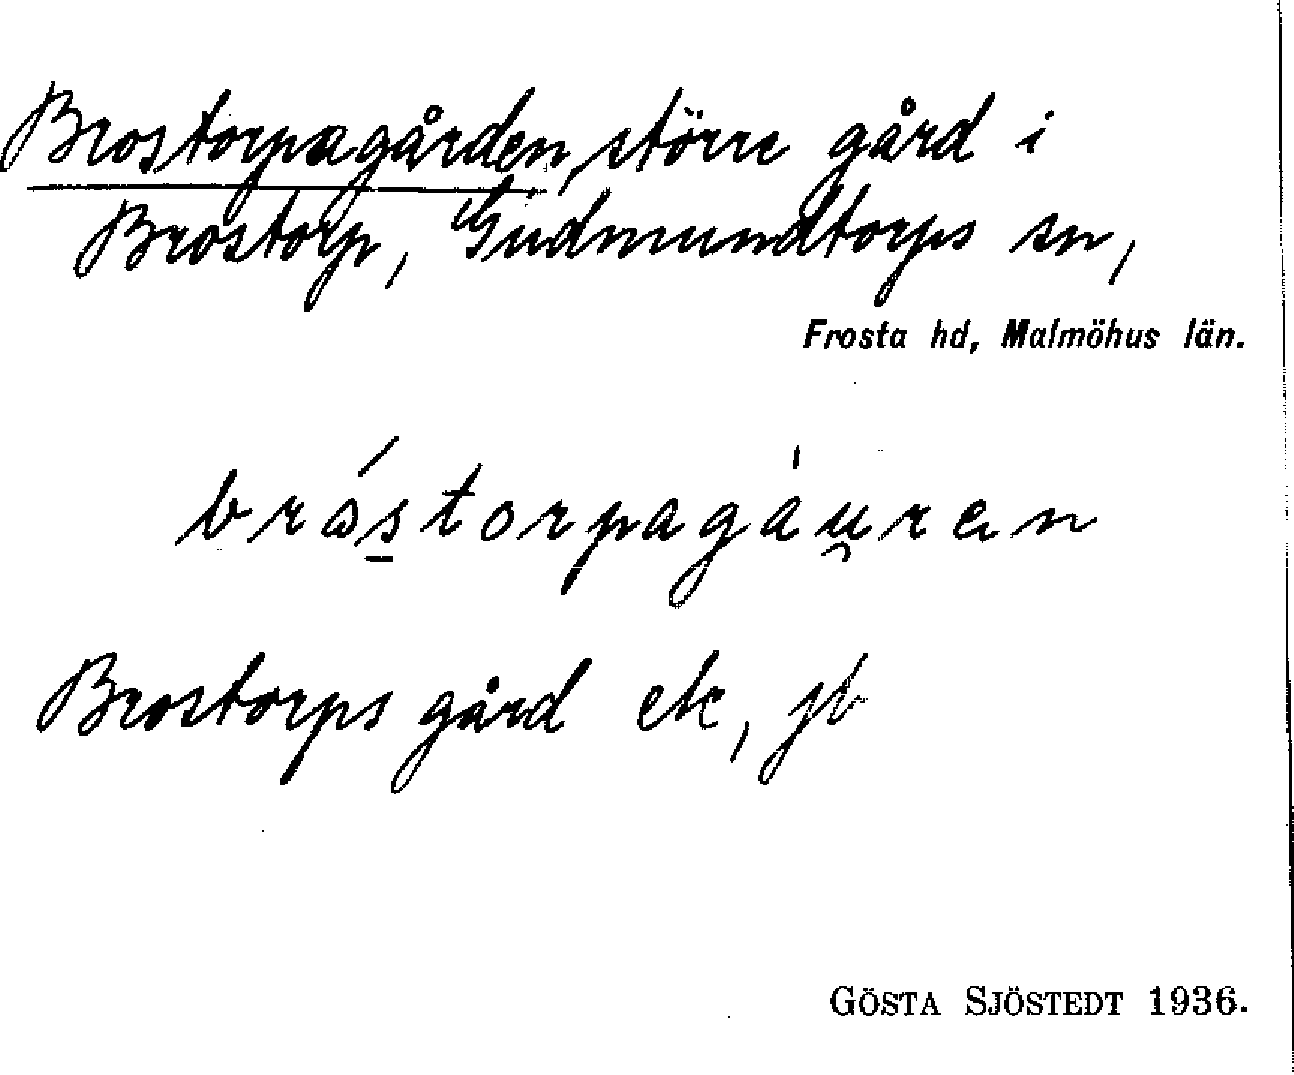 Brostorpagården, större gård i
Brostorp, Gudmundtorps sn,
Frosta hd, Malmöhus län.
bråstorpagáu̯ren
Brostorps gård etc, jb
GÖSTA SJÖSTEDT 1936.